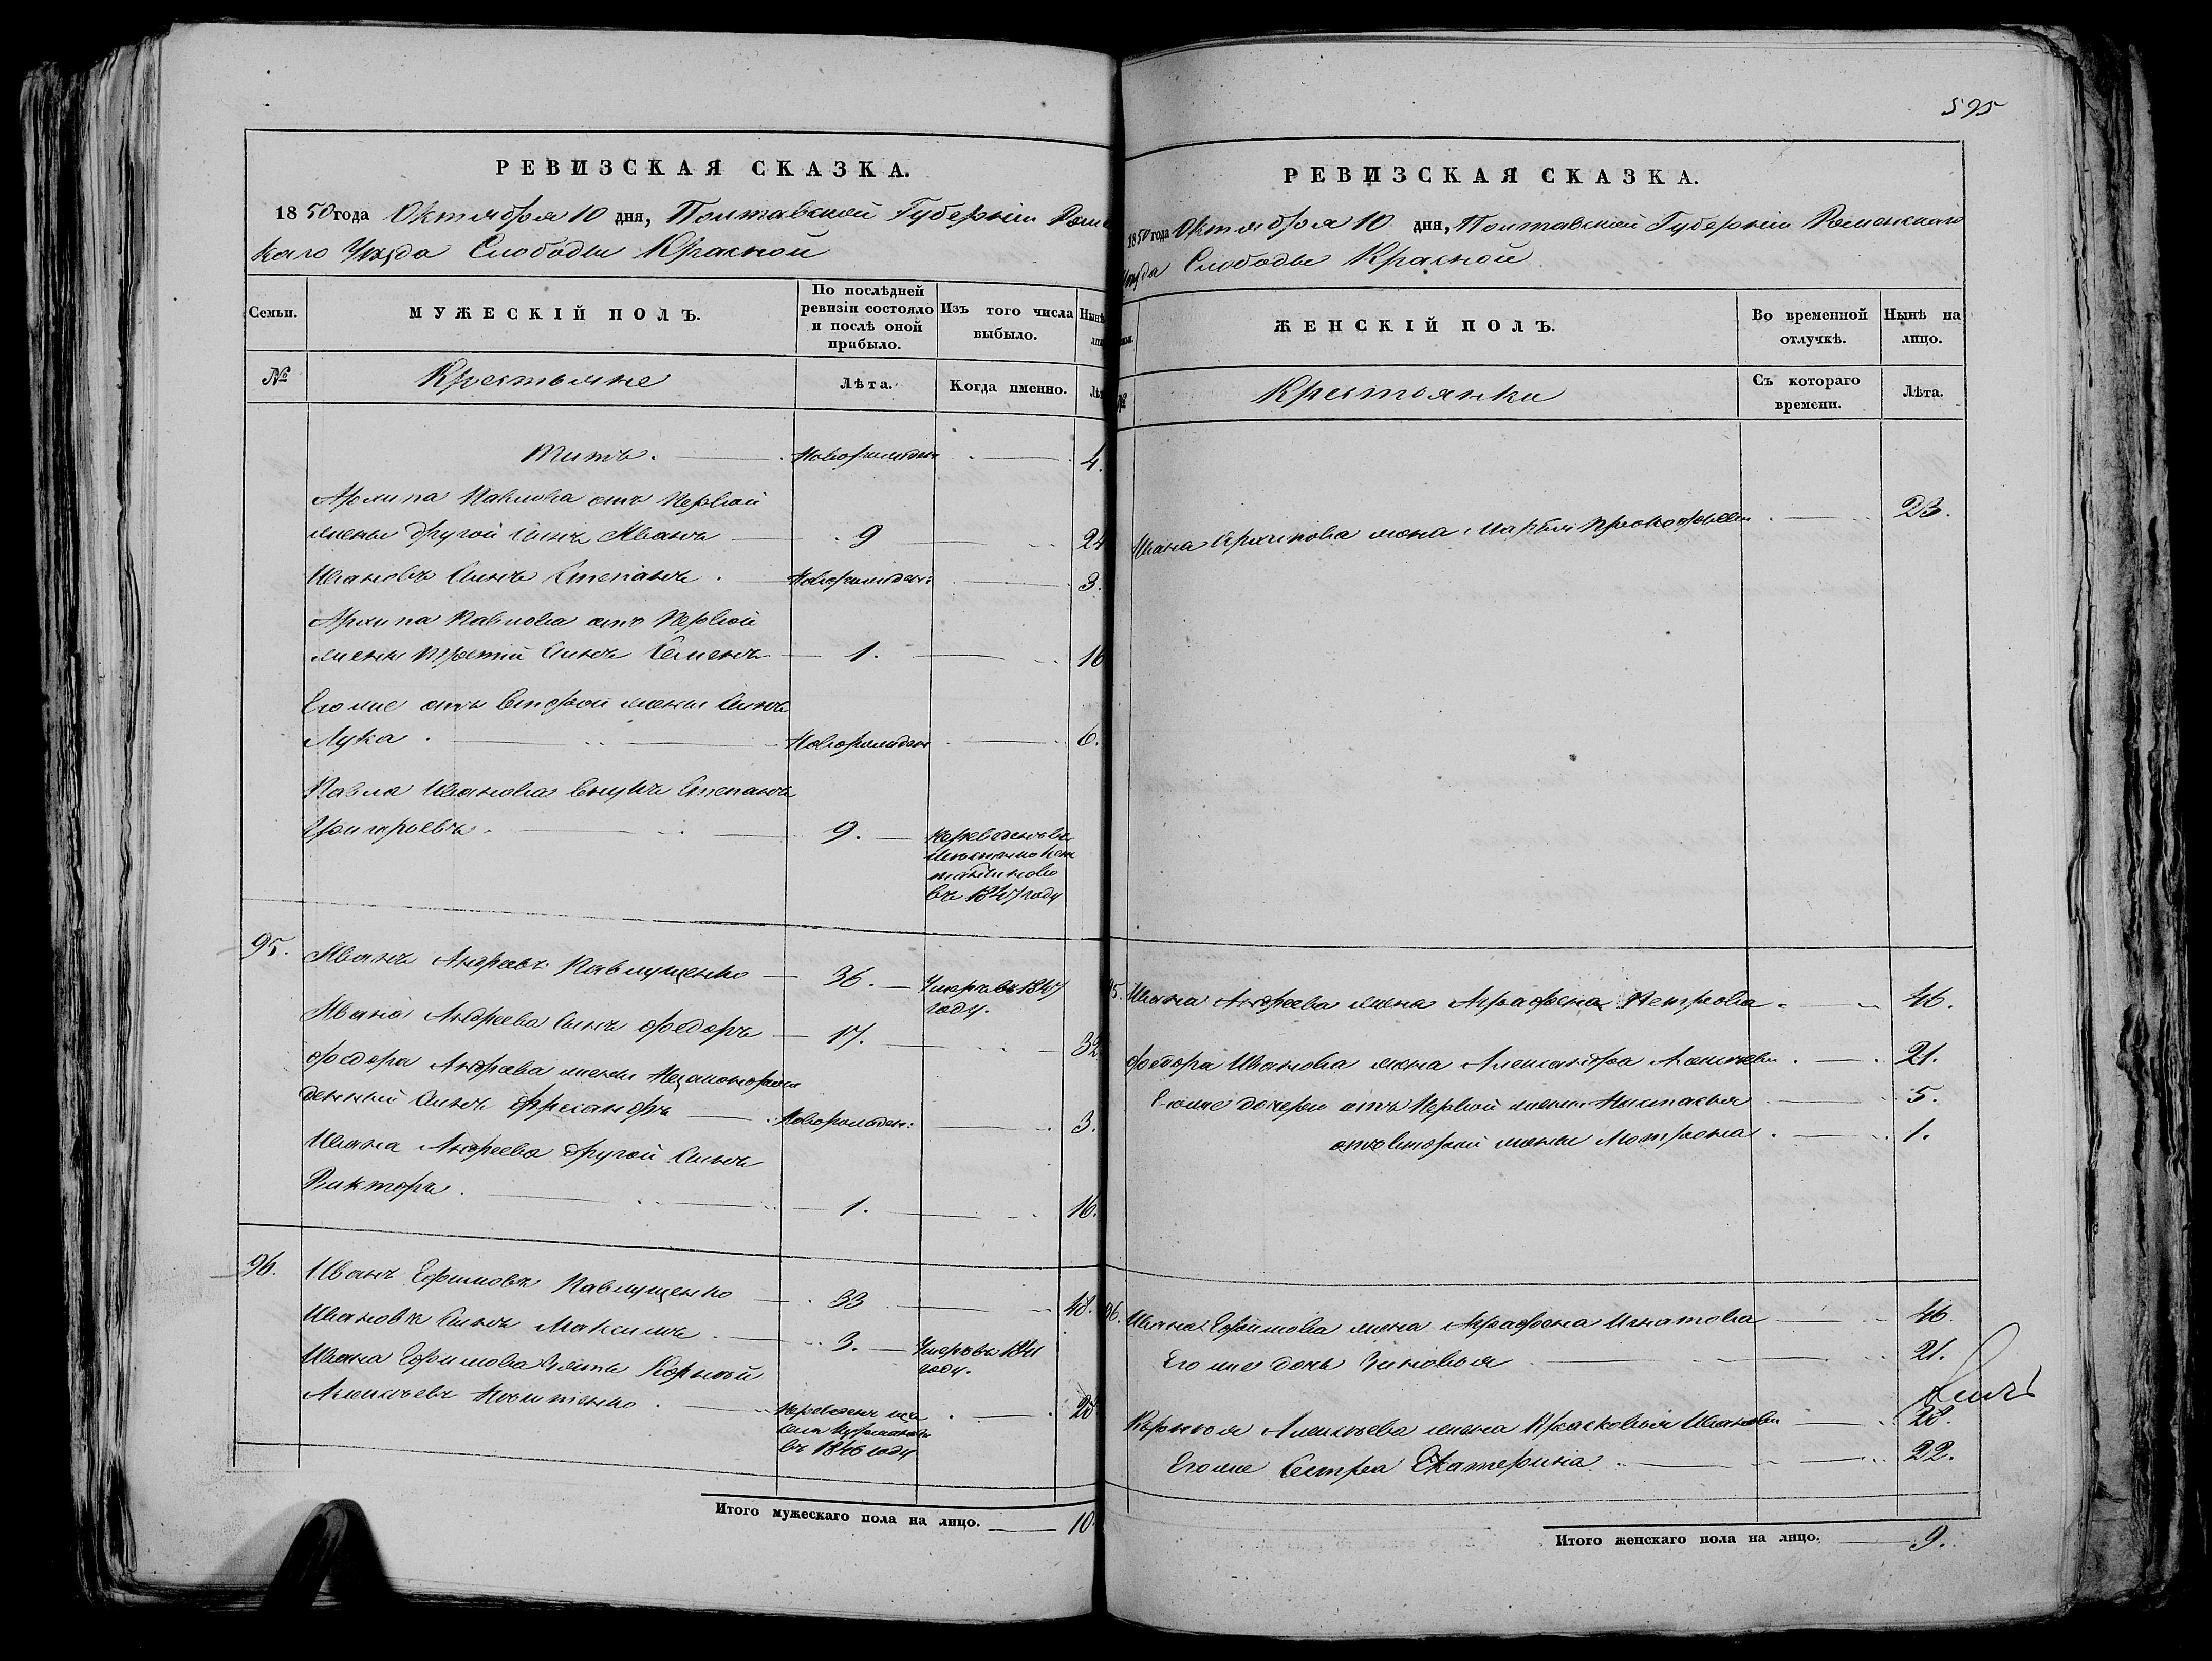 РЕВИЗСКАЯ СКАЗКА.
1850 года Октября 10 дня, Полтавской Губерніи Ромен
скаго Уѣзда Слободы Красной
Семьи.
МУЖЕСКІЙ ПОЛЪ.
По послѣдней ревизіи состояло и послѣ оной прибыло.
Изъ того числа выбыло.
Нынѣ
№
Крестьяне
Лѣта.
Когда именно.
Титъ. Новорожден 4.
Архипа Павлова отъ первой
жены другой сынъ Иванъ 9 24
Ивановъ сынъ Степанъ. Новорожден: 3.
Архипа Павлова отъ первой
жены третій сынъ Семенъ 1. 16
Его же отъ второй жены сынъ
Лука. Новорожден 6.
Павла Иванова внукъ Степанъ
Григорьевъ. 9. Переведенъ въ
въ 1847 году
95. Иванъ Андреевъ Павлущенко 36. Умеръ въ 1847
году.
Ивана Андреева сынъ Федоръ 17. 32
Федора Андреева жены незаконорож
денный сынъ Новорожден: 3.
Ивана Андреева другой сынъ
Викторъ. 1. 16.
96. Иванъ Ефимовъ Павлущенко 33 48.
Ивановъ сынъ Максимъ. 3. Умеръ въ 1841
году.
Ивана Ефимова зять Корней
Алексѣевъ 28
Переведенъ изъ
села
въ 1846 году
Итого мужескаго пола на лицо. 10.
595
РЕВИЗСКАЯ СКАЗКА.
1850 года Октября 10 дня, Полтавской Губерніи Роменскаго
Уѣзда Слободы Красной
ЖЕНСКІЙ ПОЛЪ.
Во временной отлучкѣ.
Нынѣ на лицо.
№
Крестьянки
Съ котораго времени.
Лѣта.
Ивана Архипова жена Марья Прокофьева 23.
95. Ивана Андреева жена Аграфена Петрова. 46.
Федора Иванова жена Александра Алексѣева. 21.
Его же дочери отъ первой жены Настасья 5.
отъ второй жены Мотрона. 1.
96. Ивана Ефимова жена Аграфена Игнатова 46.
Его же дочь Зиновья 21.
Корнія Алексѣева жена Прасковья Иванова 28.
Его же сестра Екатерина. 22.
Итого женскаго пола на лицо. 9.